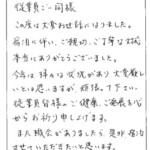 従業員ご一同様
この度は大変お世話になりました。
宿泊に伴い、ご親切、ご丁寧な対応
本当にありがとうございました。
今年は様々な状況があり大変厳し
いとは思いますが、頑張って下さい。
従業員皆様のご健康、ご発展を心
からお祈り申し上げます。
また機会がありましたら是非宿泊
させていただきたいと思います。